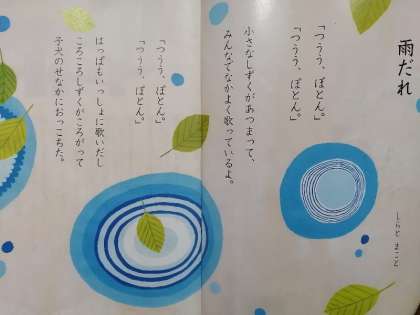 雨だれ
しらと まこと
「つうう、ぽとん。」
「つうう、ぽとん。」
小さなしずくがあつまって、
みんなでなかよく歌っているよ。
「つうう、ぽとん。」
「つうう、ぽとん。」
はっぱもいっしょに歌いだし
ころころしずくがころがって
子犬のせなかにおっこちた。